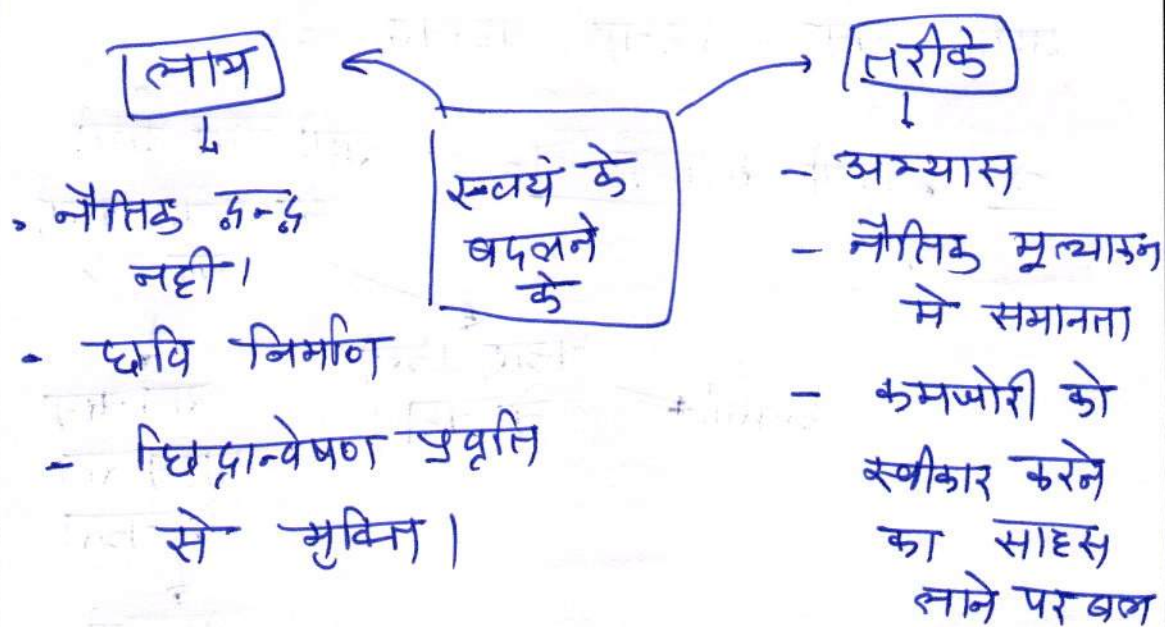 लाभ
• नैतिक द्वन्द्व
नही।
• छवि निर्माण
- छिद्रान्वेषण प्रवृत्ति
से मुक्ति।
स्वयं के
बदलने
के
तरीके
- अभ्यास
- नैतिक मूल्याकन
मे समानता
- कमजोरी को
स्वीकार करने
का साहस
लाने पर बल